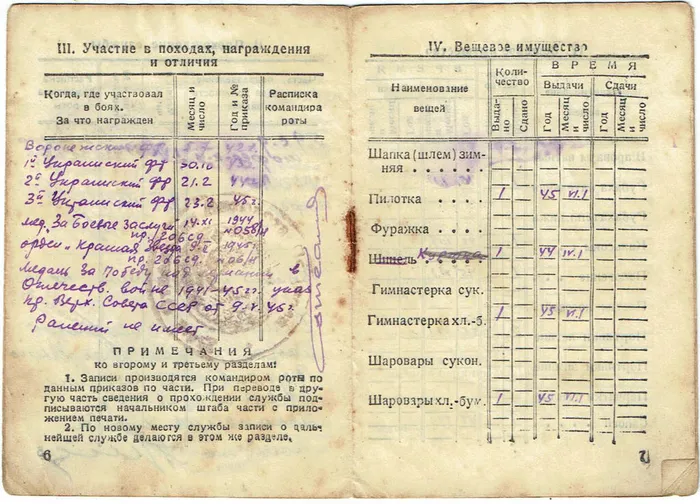 III. Участие в походах, награждения
и отличия
Когда, где участвовал
в боях.
За что награжден
Месяц и
число
Год и №
приказа
Расписка
командира
роты
Воронежский фр. 5.7 42г.
1й Украинский фр 30.10
2й Украинский фр 21.2 44г.
3й Украинский фр 23.2 45г.
мед. За Боевые заслуги 14.XI 1944
пр. 120бсд. №058/н
орден "Красная звезда 9.II 1945г.
пр. 20бсд. №06/н
Медаль За Победу над Германией в
Отечеств. войне 1941-45гг. указ
пр. Верх. Совета СССР от 9.V.45г.
Ранений не имеет
ПРИМЕЧАНИЯ
ко второму и третьему разделам:
1. Записи производятся командиром роты по
данным приказов по части. При переводе в дру-
гую часть сведения о прохождении службы под-
писываются начальником штаба части с прило-
жением печати.
2. По новому месту службы записи о даль-
нейшей службе делаются в этом же разделе.
6
IV. Вещевое имущество
Наименование
вещей
Коли-
чество
ВРЕМЯ
Выдачи
Сдачи
Выда-
но
Сдано
Год
Месяц
и число
Год
Месяц
и число
Шапка (шлем) зим-
няя . . . . .
Пилотка . . . . 1 45 VI.1
Фуражка . . . .
Шинель Куртка . . . . 1 44 IV.1
Гимнастерка сук.
Гимнастерка хл.-б. 1 45 VI.1
Шаровары сукон.
Шаровары хл.-бум. 1 45 VI.1
7